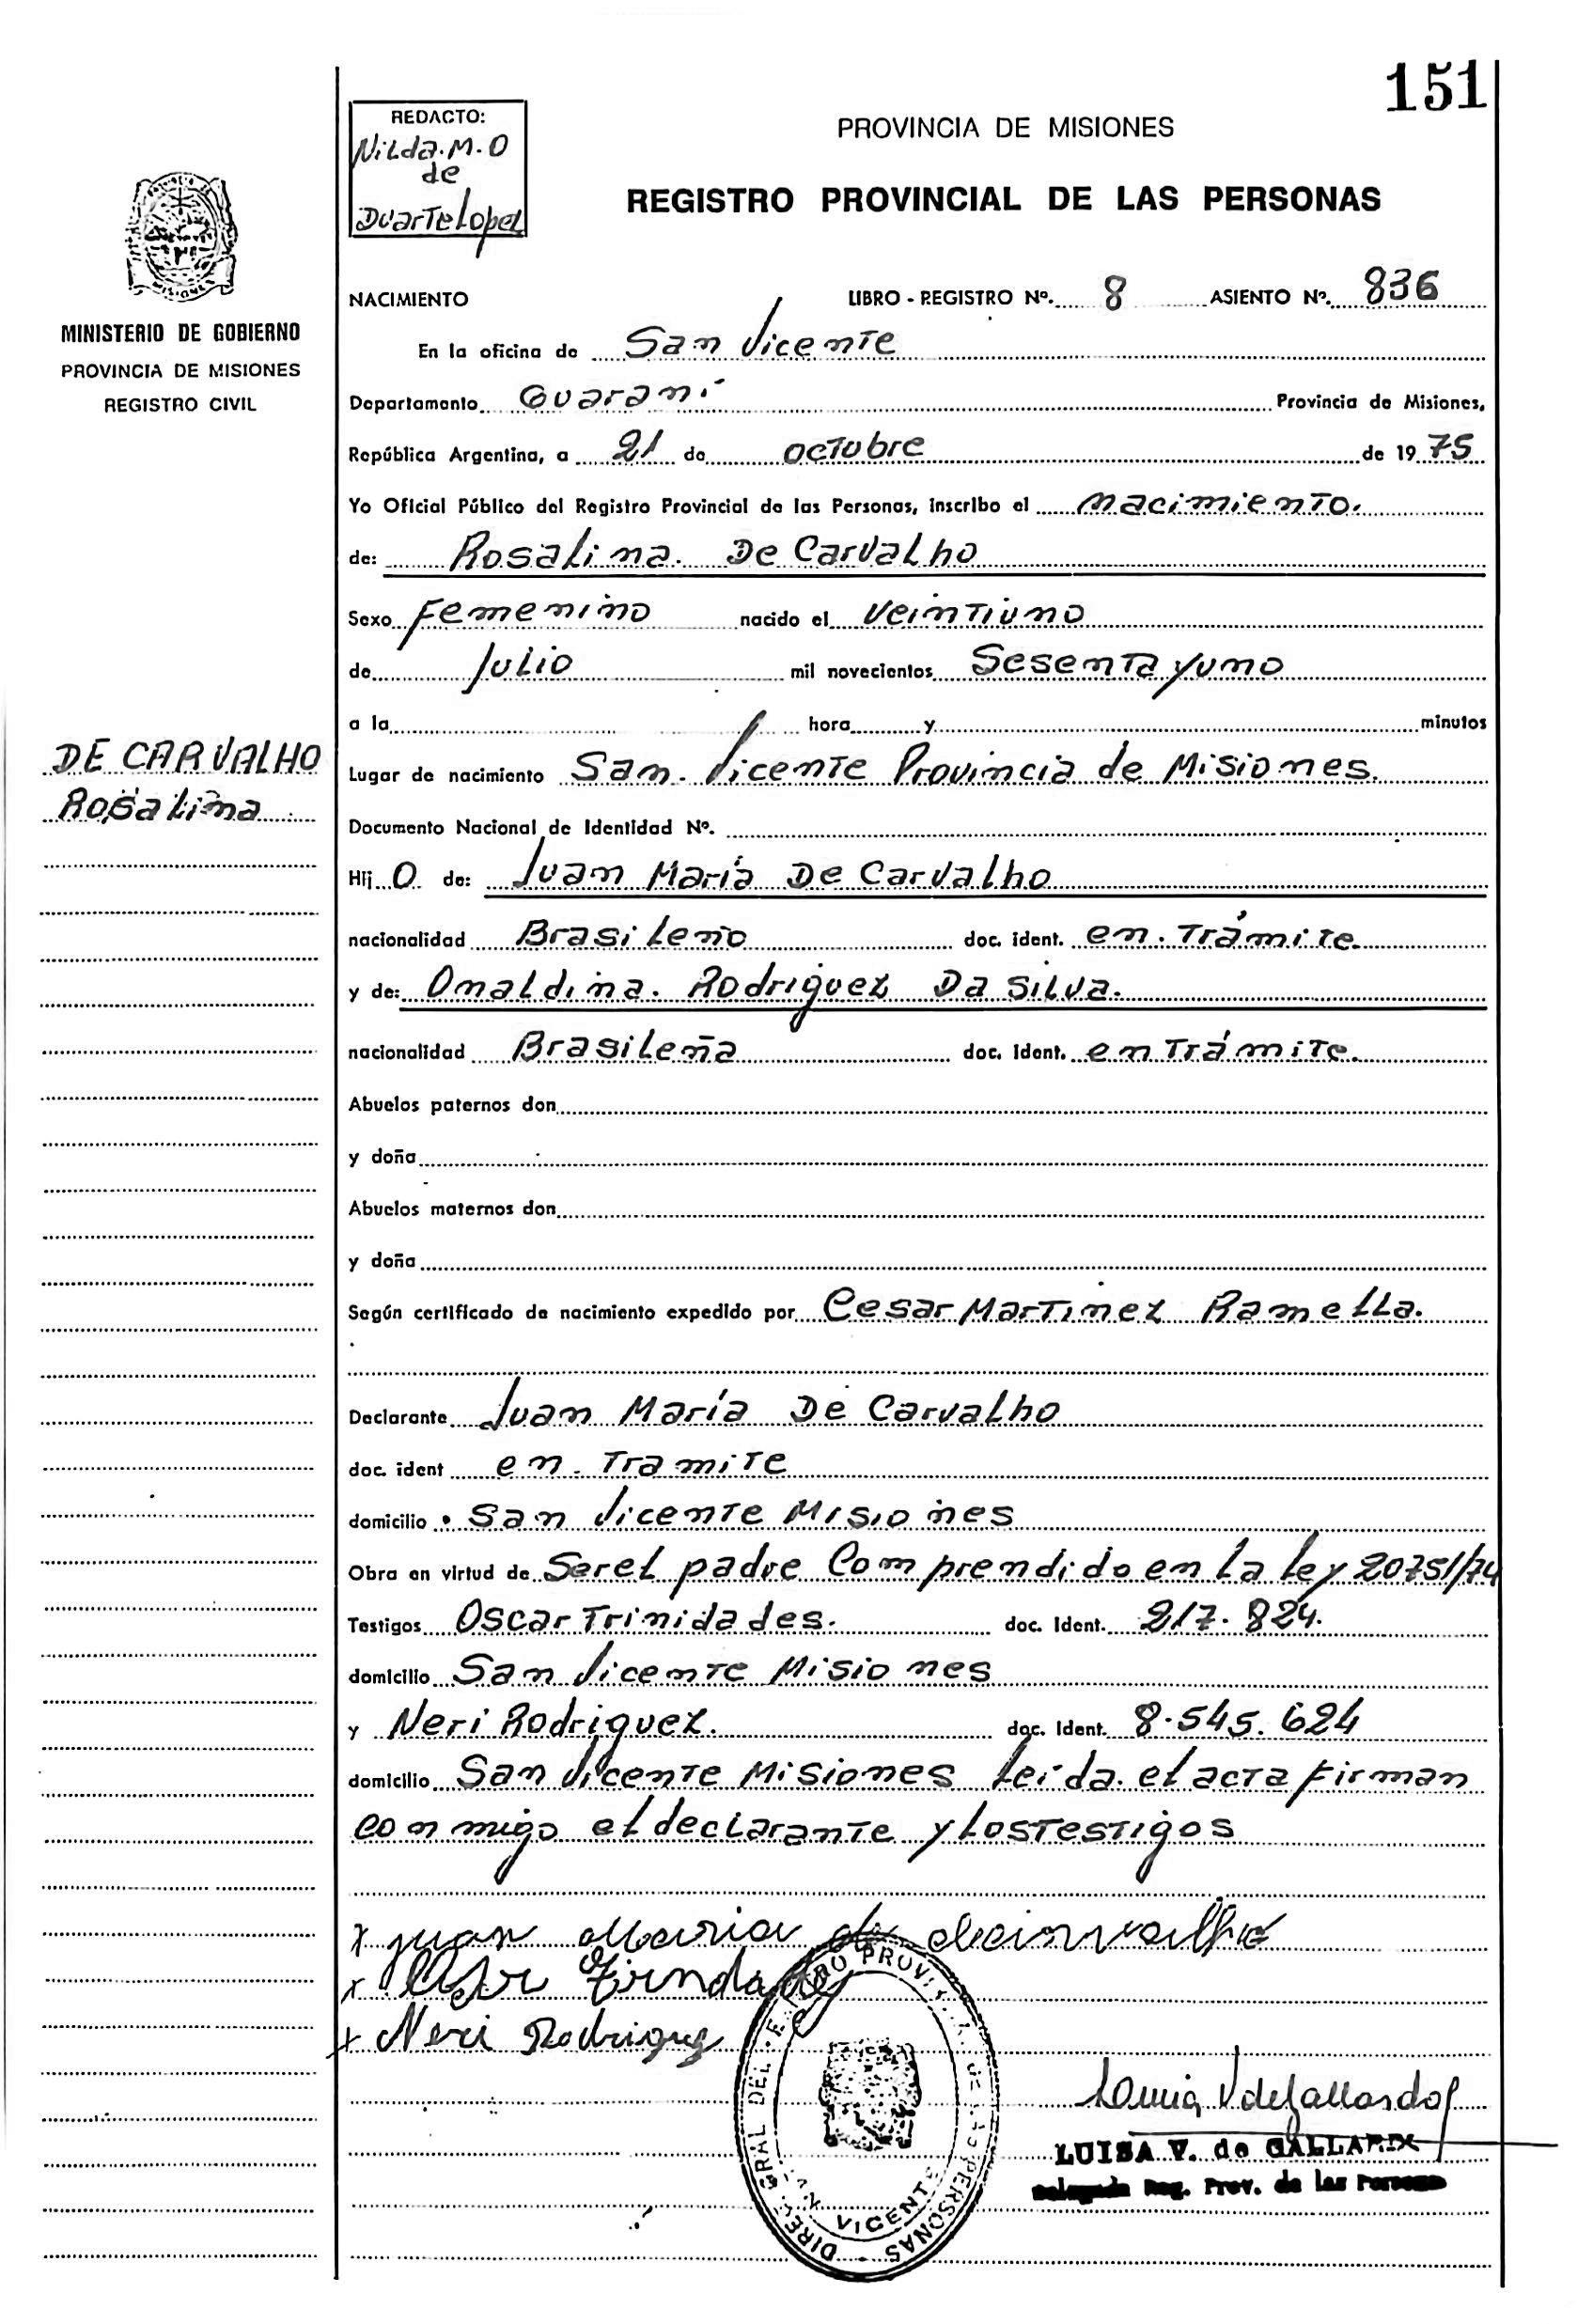 151
REDACTO:
Nilda. M. O
de
Duarte Lopez
PROVINCIA DE MISIONES
REGISTRO PROVINCIAL DE LAS PERSONAS
MINISTERIO DE GOBIERNO
PROVINCIA DE MISIONES
REGISTRO CIVIL
NACIMIENTO LIBRO - REGISTRO Nº. 8 ASIENTO Nº. 836
En la oficina de San Vicente
Departamento Guaraní Provincia de Misiones,
República Argentina, a 21 de octubre de 1975
Yo Oficial Público del Registro Provincial de las Personas, inscribo el nacimiento.
de: Rosalina. De Carvalho
Sexo Femenino nacido el Veintiuno
de Julio mil novecientos Sesenta y uno
a la hora y minutos
DE CARVALHO
Rosalina
Lugar de nacimiento San. Vicente Provincia de Misiones.
Documento Nacional de Identidad Nº.
Hij O de: Juan María De Carvalho
nacionalidad Brasileño doc. ident. en. Trámite.
y de: Onaldina. Rodriguez Da Silva.
nacionalidad Brasileña doc. ident. en Trámite.
Abuelos paternos don
y doña
Abuelos maternos don
y doña
Según certificado de nacimiento expedido por Cesar Martinez Ramella.
Declarante Juan María De Carvalho
doc. ident en. Tramite
domicilio San Vicente Misiones
Obra en virtud de Ser el padre Comprendido en la ley 20751/74
Testigos Oscar Trinidades. doc. Ident. 217.824.
domicilio San Vicente Misiones
y Neri Rodriguez. doc. Ident. 8.545.624
domicilio San Vicente Misiones Leída. el acta firman
conmigo el declarante y los testigos
x juan maria de
x
x Neri Rodriguez
DIREC. GRAL DEL REGISTRO PROVINCIAL DE LAS PERSONAS
SAN VICENTE
Luisa V de Gallardo
LUISA V. de GALLARDO
Delegada Reg. Prov. de las Personas